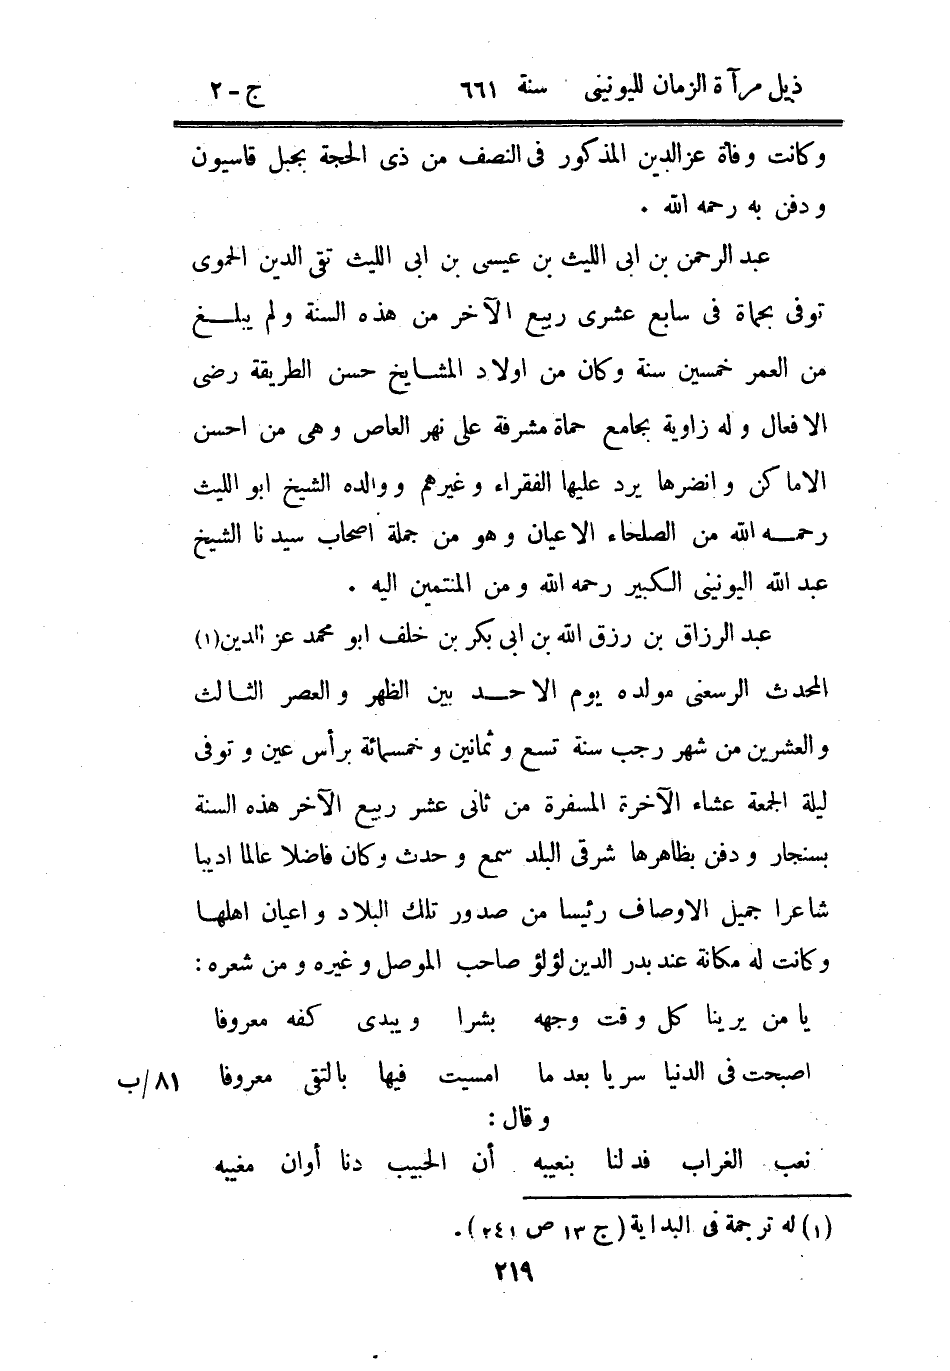 ذيل مرآة الزمان لليونينى سنة ٦٦١ ج - ٢
وكانت وفاة عزالدين المذكور فى النصف من ذى الحجة بجبل قاسيون
ودفن به رحمه الله .
عبد الرحمن بن ابى الليث بن عيسى بن ابى الليث تقى الدين الحموى
توفى بحماة فى سابع عشرى ربيع الآخر من هذه السنة ولم يبلـــغ
من العمر خمسين سنة وكان من اولاد المشـايخ حسن الطريقة رضى
الافعال وله زاوية بجامع حماة مشرفة على نهر العاص وهى من احسن
الاماكن وانضرها يرد عليها الفقراء وغيرهم ووالده الشيخ ابو الليث
رحمـــه الله من الصلحاء الاعيان وهو من جملة اصحاب سيدنا الشيخ
عبد الله اليونينى الكبير رحمه الله ومن المنتمين اليه .
عبد الرزاق بن رزق الله بن ابى بكر بن خلف ابو محمد عز الدين(١)
المحدث الرسعنى مولده يوم الاحـــد بين الظهر والعصر الثـالث
والعشرين من شهر رجب سنة تسع وثمانين وخمسمائة برأس عين وتوفى
ليلة الجمعة عشاء الآخرة المسفرة من ثانى عشر ربيع الآخر هذه السنة
بسنجار ودفن بظاهرها شرقى البلد سمع وحدث وكان فاضلا عالما اديبا
شاعرا جميل الاوصاف رئيسا من صدور تلك البلاد واعيان اهلهـا
وكانت له مكانة عند بدر الدين لؤلؤ صاحب الموصل وغيره ومن شعره :
يا من يرينا كل وقت وجهه بشرا ويبدى كفه معروفا
اصبحت فى الدنيا سريا بعد ما امسيت فيها بالتقى معروفا ٨١/ب
وقال :
نعب الغراب فدلنا بنعيبه أن الحبيب دنا أوان مغيبه
(١) له ترجمة فى البداية (ج ١٣ ص ٢٤١) .
٢١٩